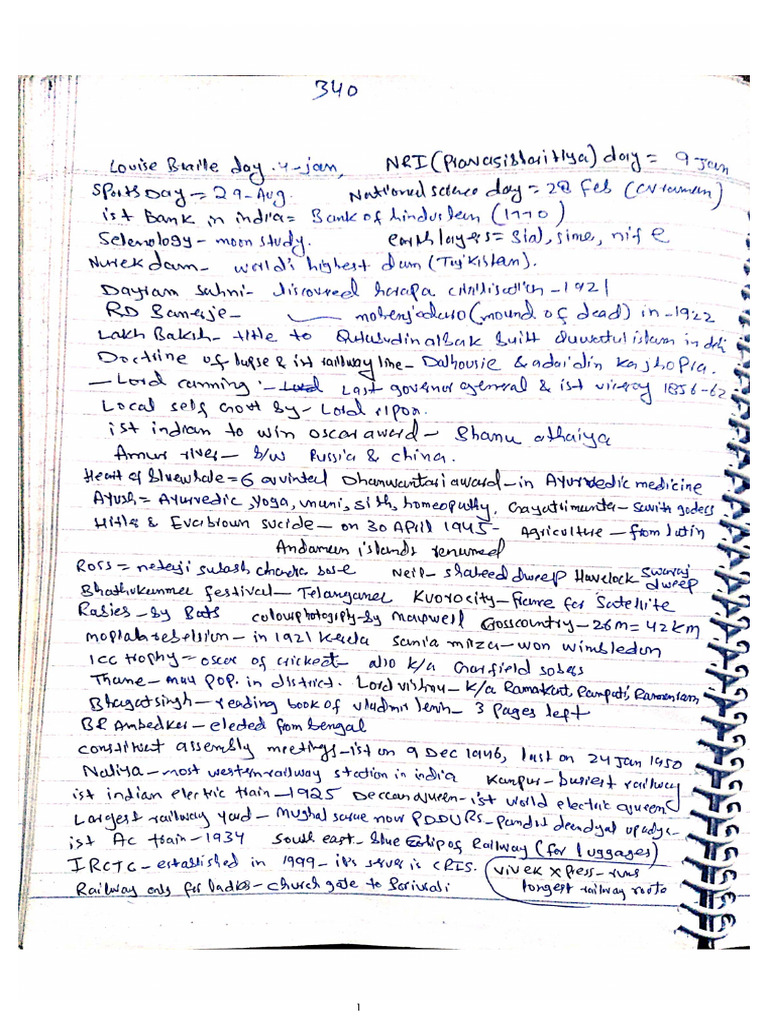 340
Louise Braille day. 4-jan, NRI (Pravasibharitiya) day = 9-jan
Sports Day = 29-Aug. National science day = 28 Feb (CV raman)
ist Bank in india = Bank of hindustan (1770)
Selenology - moon study. earth layers = Sial, sima, nife
Nurek dam - world's highest dam (Tajikistan).
Dayram sahni - discovered harapa civilisation - 1921
RD Banerje - mohenjodaro (mound of dead) in - 1922
Lakh Baksh - title to Qutubudin aibak built Quwatul islam in
Doctrine of lapse & ist railway line - Dalhousie &
- Lord canning :- Last governor general & ist viceroy 1856-62
Local self Govt by - Lord ripon.
ist indian to win oscar award - Bhanu athaiya
Amur river - b/w Russia & china.
Heart of bluewhale = 6 quintal Dhanwantari award - in Ayurvedic medicine
Ayush = Ayurvedic, yoga, unani, sidh, homeopathy. Gayatri mantra - Savitri godess
Hitler & Evabrown sucide - on 30 April 1945 - Agriculture - from latin
Andaman islands renamed
Ross = netaji subash chandra bose Neil - shaheed dweep Havelock swaraj dweep
Bhathukamma festival - Telangana Kuorocity - Frame for Satellite
Rabies - by Bats colour photography - by Maxwell Crosscountry - 26m = 42 KM
moplah rebelsion - in 1921 Kerala sania mirza - won wimbledon
ICC trophy = oscar of cricket - also k/a Garfield sobers
Thane - max pop. in district. Lord vishnu - k/a Ramakut, Rampati,
Bhagat singh - reading book of vladmir lenin - 3 pages left
BR Ambedker - elected from bengal
constituent assembly meetings - ist on 9 Dec 1946, last on 24 Jan 1950
Naliya - most western railway station in india Kanpur - busiest railway
ist indian electric train - 1925 Deccan queen - ist world electric queen
Largest railway yard - Mughal sarae now PDDURS - pandit deendyal upadya -
ist Ac train - 1934 South east - blue of Railway (for luggages)
IRCTC - established in 1999 - its server is CRIS. vivek xpress - runs
Railway only for ladies - church gate to Borivali longest railway route
1